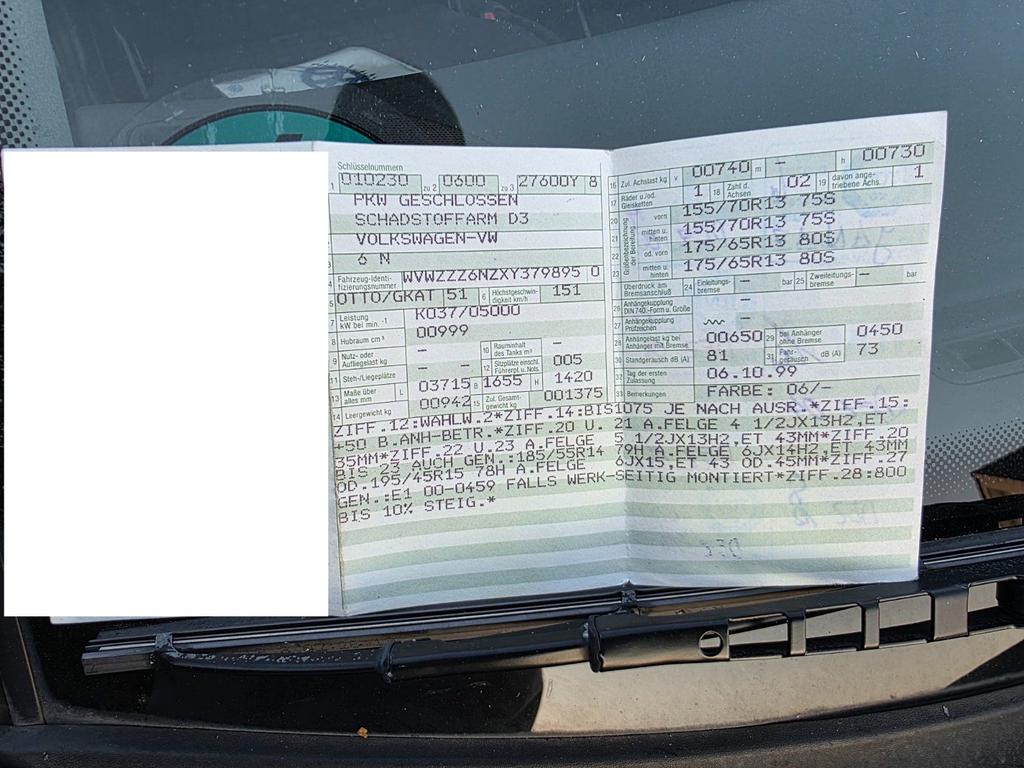 Schlüsselnummern
1 010230 zu 2 0600 zu 3 27600Y 8
PKW GESCHLOSSEN
SCHADSTOFFARM D3
VOLKSWAGEN-VW
3 6 N
4 Fahrzeug-Identifizierungsnummer WVWZZZ6NZXY379895 0
5 OTTO/GKAT 51 6 Höchstgeschwindigkeit km/h 151
7 Leistung kW bei min.-1 K037/05000
8 Hubraum cm³ 00999
9 Nutz- oder Aufliegelast kg - 10 Rauminhalt des Tanks m³ -
11 Steh-/Liegeplätze - 12 Sitzplätze einschl. Führerpl. u. Nots. 005
13 Maße über alles mm L 03715 B 1655 H 1420
14 Leergewicht kg 00942 15 Zul. Gesamtgewicht kg 001375
16 Zul. Achslast kg v 00740 m - h 00730
17 Räder u./od. Gleisketten 1 18 Zahl d. Achsen 02 19 davon angetriebene Achs. 1
Größenbezeichnung der Bereifung
20 vorn 155/70R13 75S
21 mitten u. hinten 155/70R13 75S
22 od. vorn 175/65R13 80S
23 mitten u. hinten 175/65R13 80S
Überdruck am Bremsanschluß 24 Einleitungsbremse - bar 25 Zweileitungsbremse - bar
26 Anhängekupplung DIN 740.-Form u. Größe -
27 Anhängekupplung Prüfzeichen -
28 Anhängelast kg bei Anhänger mit Bremse 00650 29 bei Anhänger ohne Bremse 0450
30 Standgeräusch dB (A) 81 31 Fahrgeräusch dB (A) 73
32 Tag der ersten Zulassung 06.10.99
33 Bemerkungen FARBE: 06/-
ZIFF.12:WAHLW.2*ZIFF.14:BIS1075 JE NACH AUSR.*ZIFF.15:
+50 B.ANH-BETR.*ZIFF.20 U. 21 A.FELGE 4 1/2JX13H2,ET
35MM*ZIFF.22 U.23 A.FELGE 5 1/2JX13H2,ET 43MM*ZIFF.20
BIS 23 AUCH GEN.:185/55R14 79H A.FELGE 6JX14H2,ET 43MM
OD.195/45R15 78H A.FELGE 6JX15,ET 43 OD.45MM*ZIFF.27
GEN.:E1 00-0459 FALLS WERK-SEITIG MONTIERT*ZIFF.28:800
BIS 10% STEIG.*